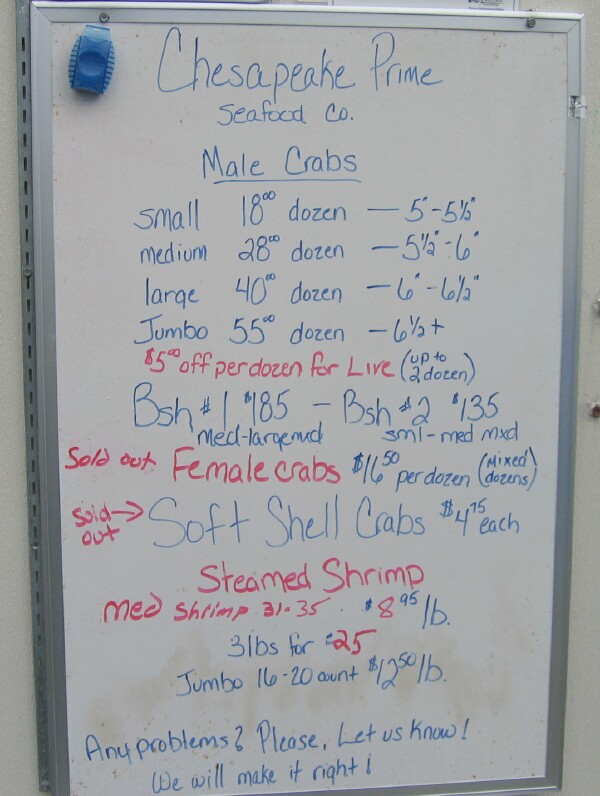 Chesapeake Prime
Seafood Co.
Male Crabs
small 18⁰⁰ dozen — 5" - 5½"
medium 28⁰⁰ dozen — 5½" - 6"
large 40⁰⁰ dozen — 6" - 6½"
Jumbo 55⁰⁰ dozen — 6½ +
$5⁰⁰ off per dozen for Live (up to 2 dozen)
Bsh #1 $185 — Bsh #2 $135
med-large mxd sml-med mxd
Sold out Female crabs $16⁵⁰ per dozen (Mixed dozens)
sold out → Soft Shell Crabs $4⁷⁵ each
Steamed Shrimp
med shrimp 31-35 . $8⁹⁵ lb.
3 lbs for $25
Jumbo 16-20 count $12⁵⁰ lb.
Any problems? Please, Let us know!
We will make it right!